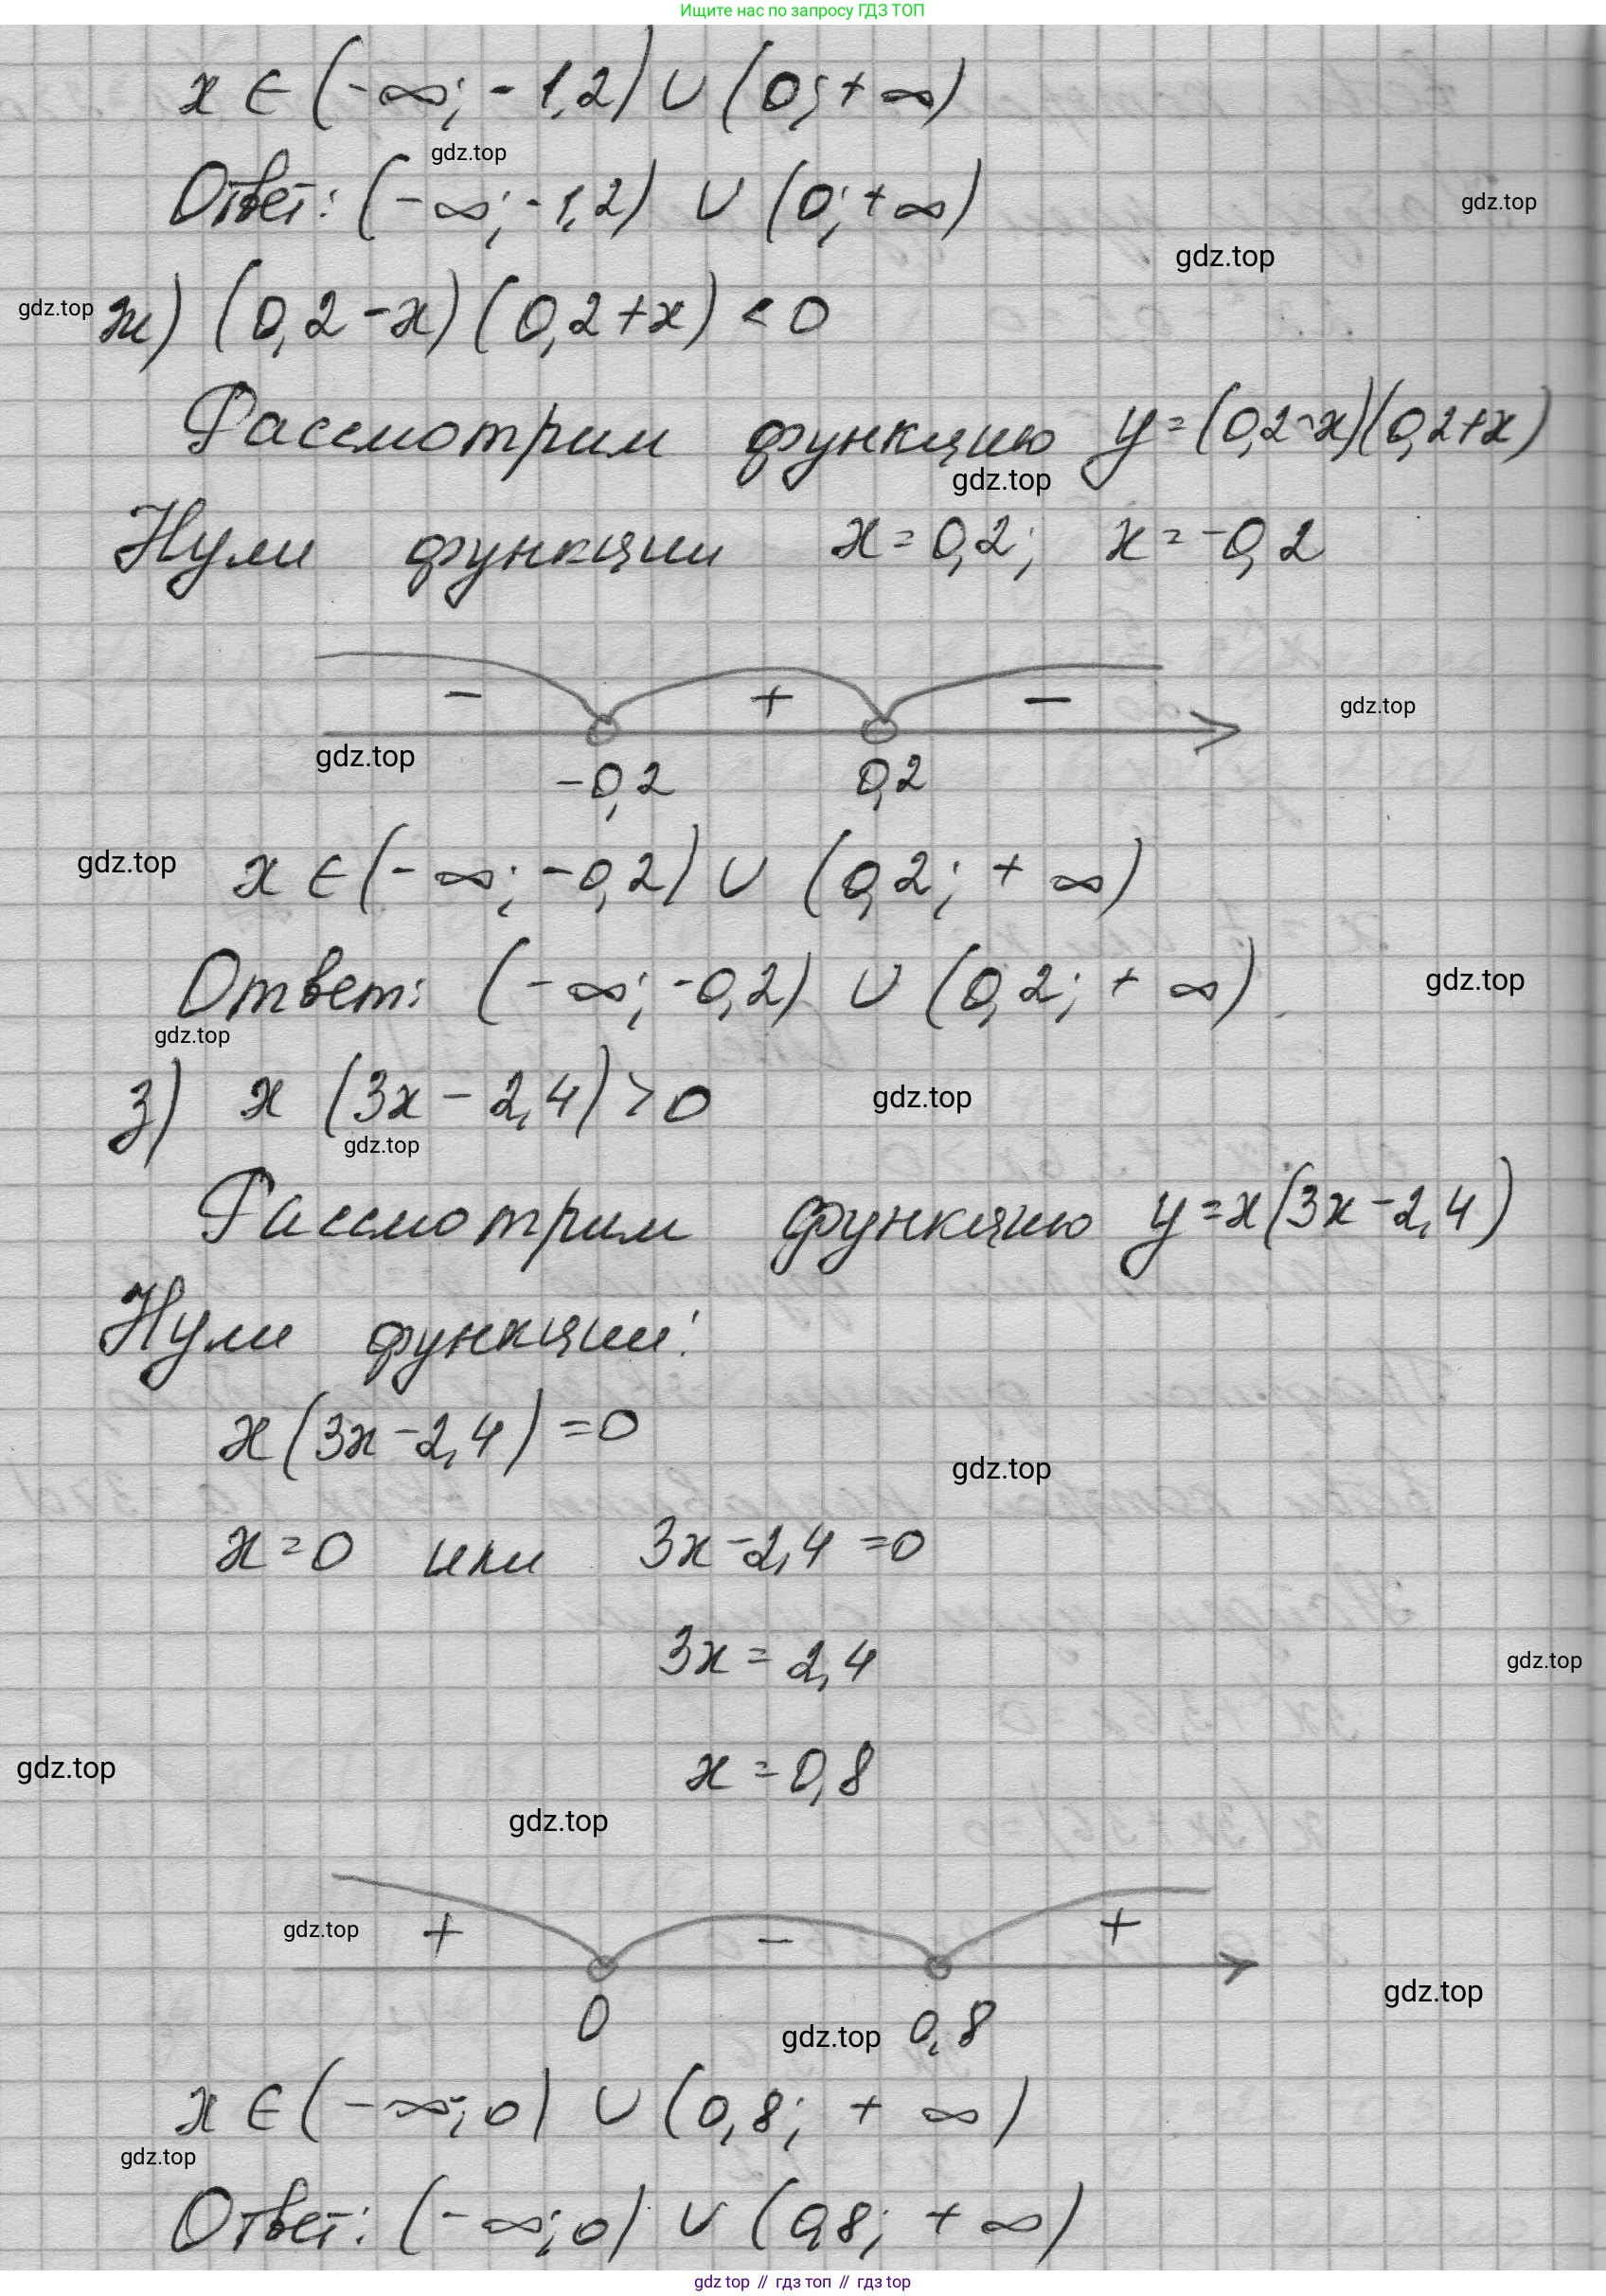 Ищите нас по запросу ГДЗ ТОП
x ∈ (-∞; -1,2) ∪ (0; +∞)
gdz.top
Ответ: (-∞; -1,2) ∪ (0; +∞)
gdz.top
gdz.top
gdz.top
ж) (0,2-x)(0,2+x) < 0
Рассмотрим функцию y=(0,2-x)(0,2+x)
gdz.top
Нули функции x=0,2; x=-0,2
- + -
gdz.top
gdz.top
-0,2 0,2
gdz.top
x ∈ (-∞; -0,2) ∪ (0,2; +∞)
Ответ: (-∞; -0,2) ∪ (0,2; +∞).
gdz.top
gdz.top
з) x (3x - 2,4) > 0
gdz.top
gdz.top
Рассмотрим функцию y=x(3x-2,4)
Нули функции:
x(3x-2,4)=0
gdz.top
x=0 или 3x-2,4=0
3x=2,4
gdz.top
x=0,8
gdz.top
gdz.top
gdz.top
+ - +
gdz.top
0 0,8
gdz.top
x ∈ (-∞; 0) ∪ (0,8; +∞)
gdz.top
Ответ: (-∞; 0) ∪ (0,8; +∞)
gdz top // гдз топ // гдз top